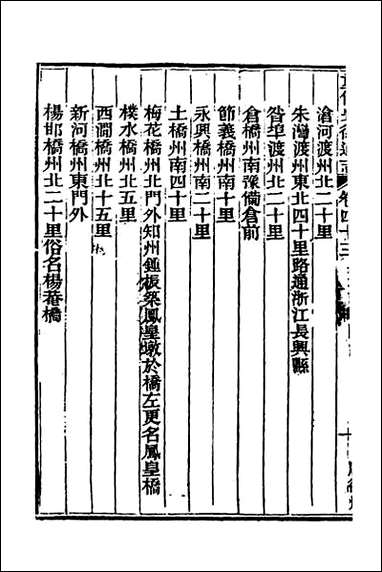 滄河渡州北二十里
朱灣渡州東北四十里路通浙江長興縣
昝埠渡州北二十里
倉橋州南豫備倉前
節義橋州南十里
永興橋州南二十里
土橋州南四十里
梅花橋州北門外知州鍾振築鳳皇墩於橋左更名鳳皇橋
樸水橋州北五里
西澗橋州北十五里
新河橋州東門外
楊邯橋州北二十里俗名楊菴橋